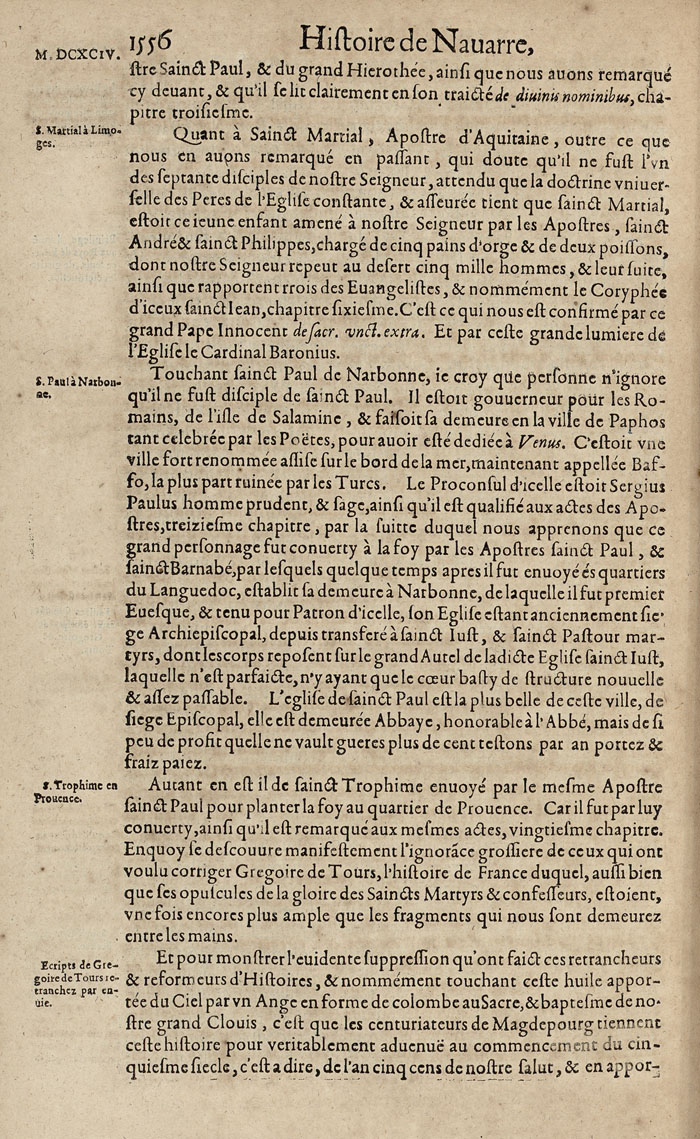 M. DCXCIV.
1556 Hiſtoire de Nauarre,
ſtre Sainct Paul, & du grand Hierothée, ainſi que nous auons remarqué
cy deuant, & qu'il ſe lit clairement en ſon traicté de diuinis nominibus, cha-
pitre troiſieſme.
S. Martial à Limo-
ges.
Quant à Sainct Martial, Apoſtre d'Aquitaine, outre ce que
nous en auons remarqué en paſſant, qui doute qu'il ne fuſt l'vn
des ſeptante diſciples de noſtre Seigneur, attendu que la doctrine vniuer-
ſelle des Peres de l'Egliſe conſtante, & aſſeurée tient que ſainct Martial,
eſtoit ce ieune enfant amené à noſtre Seigneur par les Apoſtres, ſainct
André & ſainct Philippes, chargé de cinq pains d'orge & de deux poiſſons,
dont noſtre Seigneur repeut au deſert cinq mille hommes, & leur ſuite,
ainſi que rapportent rrois des Euangeliſtes, & nommément le Coryphée
d'iceux ſainct Iean, chapitre ſixieſme. C'eſt ce qui nous eſt confirmé par ce
grand Pape Innocent de ſacr. vnct. extra. Et par ceſte grande lumiere de
l'Egliſe le Cardinal Baronius.
S. Paul à Narbon-
ne.
Touchant ſainct Paul de Narbonne, ie croy que perſonne n'ignore
qu'il ne fuſt diſciple de ſainct Paul. Il eſtoit gouuerneur pour les Ro-
mains, de l'iſle de Salamine, & faiſoit ſa demeure en la ville de Paphos
tant celebrée par les Poëtes, pour auoir eſté dediée à Venus. C'eſtoit vne
ville fort renommée aſſiſe ſur le bord de la mer, maintenant appellée Baf-
fo, la plus part ruinée par les Turcs. Le Proconſul d'icelle eſtoit Sergius
Paulus homme prudent, & ſage, ainſi qu'il eſt qualifié aux actes des Apo-
ſtres, treizieſme chapitre, par la ſuitte duquel nous apprenons que ce
grand perſonnage fut conuerty à la foy par les Apoſtres ſainct Paul, &
ſainct Barnabé, par leſquels quelque temps apres il fut enuoyé és quartiers
du Languedoc, eſtablit ſa demeure à Narbonne, de laquelle il fut premier
Eueſque, & tenu pour Patron d'icelle, ſon Egliſe eſtant anciennement ſie-
ge Archiepiſcopal, depuis transferé à ſainct Iuſt, & ſainct Paſtour mar-
tyrs, dont les corps repoſent ſur le grand Autel de ladicte Egliſe ſainct Iuſt,
laquelle n'eſt parfaicte, n'y ayant que le cœur baſty de ſtructure nouuelle
& aſſez paſſable. L'egliſe de ſainct Paul eſt la plus belle de ceſte ville, de
ſiege Epiſcopal, elle eſt demeurée Abbaye, honorable à l'Abbé, mais de ſi
peu de profit quelle ne vault gueres plus de cent teſtons par an portez &
fraiz paiez.
S. Trophime en
Prouence.
Autant en eſt il de ſainct Trophime enuoyé par le meſme Apoſtre
ſainct Paul pour planter la foy au quartier de Prouence. Car il fut par luy
conuerty, ainſi qu'il eſt remarqué aux meſmes actes, vingtieſme chapitre.
Enquoy ſe deſcouure manifeſtement l'ignorãce groſſiere de ceux qui ont
voulu corriger Gregoire de Tours, l'hiſtoire de France duquel, auſſi bien
que ſes opuſcules de la gloire des Saincts Martyrs & confeſſeurs, eſtoient,
vne fois encores plus ample que les fragments qui nous ſont demeurez
entre les mains.
Ecripts de Gre-
goire de Tours re-
tranchez par en-
uie.
Et pour monſtrer l'euidente ſuppreſſion qu'ont faict ces retrancheurs
& reformeurs d'Hiſtoires, & nommément touchant ceſte huile appor-
tée du Ciel par vn Ange en forme de colombe au Sacre, & bapteſme de no-
ſtre grand Clouis, c'eſt que les centuriateurs de Magdepourg tiennent
ceſte hiſtoire pour veritablement aduenuë au commencement du cin-
quieſme ſiecle, c'eſt a dire, de l'an cinq cens de noſtre ſalut, & en appor-